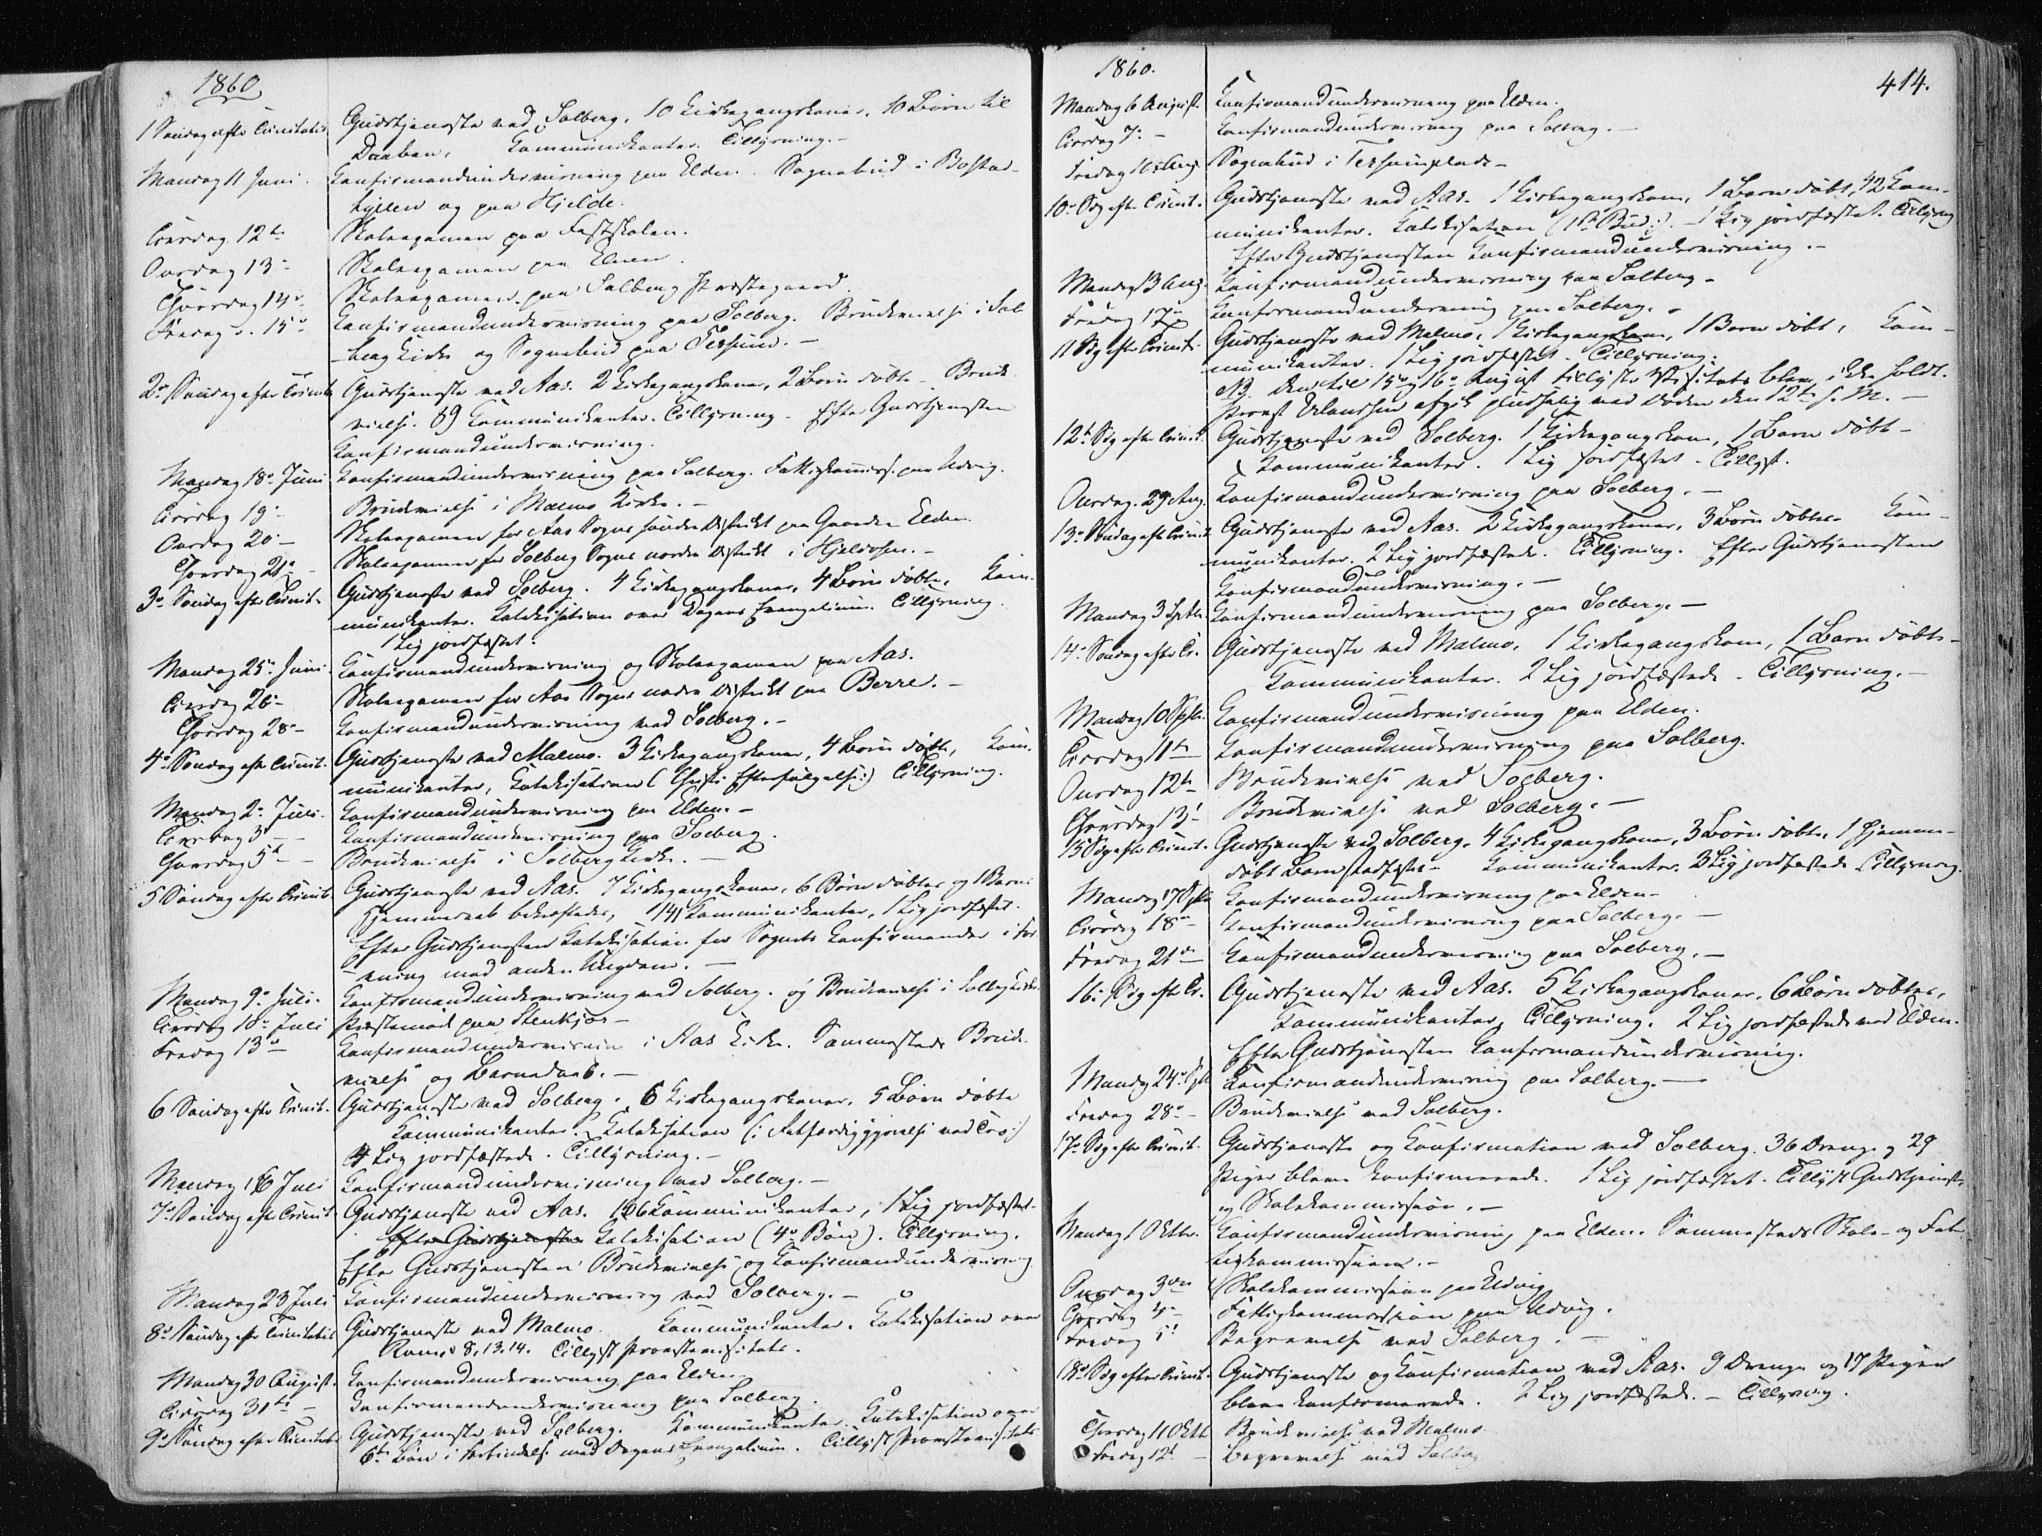 1860.
1 Søndag efter Trinitatis. Gudstjeneste ved Solberg. 10 Kirkegangskoner. 10 Børn til
Daaben, Kommunikanter. Tillysning. -
Mandag 11 Juni. Konfirmandundervisning paa Elden. Sognebud i
og paa Hjelde.
Tirsdag 12te Skoleexamen paa Fastskolen.
Onsdag 13- Skoleexamen paa Elden.
Thorsdag 14de Skoleexamen paa Solberg Præstegaard.
Fredag d. 15de Konfirmandundervisning paa Solberg. Brudevielse i Sol-
berg Kirke og Sognebud paa -
2den Søndag efter Trinit. Gudstjeneste ved Aas. 2 Kirkegangskoner, 2 Børn døbte. Brude-
vielse. 89 Kommunikanter. Tillysning. Efter Gudstjenesten
Konfirmandundervisning.
Mandag 18de Juni Konfirmandundervisning paa Solberg. Fattigkommiss. paa Udvig.
Tirsdag 19- Brudevielse i Malmo Kirke. -
Onsdag 20- Skoleexamen for Aas Sogns søndre Distrikt paa Elden.
Thorsdag 21de Skoleexamen for Solberg Sogns nordre Distrikt i -
3die Søndag efter Trinit. Gudstjeneste ved Solberg. 4 Kirkegangskoner, 4 Børn døbte, Kom-
munikanter. Katekisation over Dagens Evangelium. Tillysning.
1 Lig jordfæstet.
Mandag 25de Juni. Konfirmandundervisning og Skoleexamen paa Aas.
Tirsdag 26- Skoleexamen for Aas Sogns nordre Distrikt paa Berre. -
Thorsdag 28- Konfirmandundervisning ved Solberg. -
4de Søndag eft. Trinit. Gudstjeneste ved Malmo. 3 Kirkegangskoner, 4 Børn døbte, Kom-
munikanter, Katekisation (Christi Efterfølgelse:) Tillysning.
Mandag 2- Juli. Konfirmandundervisning paa Elden. -
Tirsdag 3- Konfirmandundervisning paa Solberg.
Thorsdag 5te - Brudevielse i Solberg Kirke. -
5 Søndag efter Trinit. Gudstjeneste ved Aas. 7 Kirkegangskoner, 6 Børn døbte og 1 Barns
Hjemmedaab bekræftedes, 141 Kommunikanter, 1 Lig jordfæstet.
Efter Gudstjenesten Katekisation for Sognets Konfirmander i For-
ening med anden Ungdom. -
Mandag 9de Juli. Konfirmandundervisning ved Solberg. og Brudevielse i Solberg Kirke.
Tirsdag 10de Juli Præstemøde paa Stenkjær -
Fredag 13de Konfirmandundervisning i Aas Kirke. Sammesteds Brude-
vielse og Barnedaab. -
6 Søndag efter Trinit. Gudstjeneste ved Solberg. 6 Kirkegangskoner. 5 Børn døbte
Kommunikanter. Katekisation (: Retfærdiggjørelse ved Tro:)
4 Lig jordfæstede. Tillysning. -
Mandag 16 Juli Konfirmandundervisning ved Solberg. -
7de Søndag efter Trinit. Gudstjeneste ved Aas. 106 Kommunikanter, 1 Lig jordfæstet.
Efter Gudstjenesten Katekisation (4de Bøn). Tillysning.
Efter Gudstjenesten Brudevielse og Konfirmandundervisning
Mandag 23 Juli Konfirmandundervisning ved Solberg. -
8de Søndag efter Trinitatis Gudstjeneste ved Malmo. Kommunikanter. Katekisation over
Rom. 8, 13. 14. Tillyst Provstevisitats.
Mandag 30 August. Konfirmandundervisning paa Elden.
Tirsdag 31te - Konfirmandundervisning paa Solberg.
9de Søndag efter Trinitatis Gudstjeneste ved Solberg. Kommunikanter. Katekisation over
6te Bøn i Forbindelse med Dagens Evangelium. Tillyst Provstevisitats
1860.
414.
Mandag 6 August. Konfirmandundervisning paa Elden.
Tirsdag 7- - Konfirmandundervisning paa Solberg. -
Fredag 10de Aug. Sognebud i -
10de Søg efter Trinit. Gudstjeneste ved Aas. 1 Kirkegangskone, 1 Barn døbt, 42 Kom-
munikanter. Katekisation (1ste Bud:). - 1 Lig jordfæstet. Tillysning
Efter Gudstjenesten Konfirmandundervisning. -
Mandag 13 Aug. Konfirmandundervisning paa Solberg -
Fredag 17de Konfirmandundervisning paa Solberg. -
11 Søg efter Trinit. Gudstjeneste ved Malmo, 1 Kirkegangskone, 1 Barn døbt, Kom-
munikanter. 1 Lig jordfæstet. Tillysning.
NB. Den til 15de og 16de August tillyste Visitats blev ikke holdt.
Provst afgik pludselig ved Døden den 12te s. M. -
12te Søg efter Trinit. Gudstjeneste ved Solberg. 1 Kirkegangskone, 1 Barn døbt -
Kommunikanter. 1 Lig jordfæstet - Tillyst.
Onsdag 29 Aug. Konfirmandundervisning paa Solberg. -
13de Søndag eft. Trinit. Gudstjeneste ved Aas. 2 Kirkegangskoner, 3 Børn døbte. Kom-
munikanter. 2 Lig jordfæstede. Tillysning. Efter Gudstjenesten
Konfirmandundervisning. -
Mandag 3 Septbr. Konfirmandundervisning paa Solberg. -
14de Søndag efter Tr. Gudstjeneste ved Malmo, 1 Kirkegangskone, 1 Barn døbt -
Kommunikanter. 2 Lig jordfæstede - Tillysning. -
Mandag 10 Septbr. Konfirmandundervisning paa Elden.
Tirsdag 11te - Konfirmandundervisning paa Solberg.
Onsdag 12te Brudevielse ved Solberg.
Thorsdag 13- Brudevielse ved Solberg. -
15 Søg efter Trinit. Gudstjeneste ved Solberg. 4 Kirkegangskoner, 3 Børn døbte, 1 Hjemme-
døbt Barn stadfæstet - Kommunikanter. 3 Lig jordfæstede Tillysning.
Mandag 17 Septbr. Konfirmandundervisning paa Elden -
Tirsdag 18de Konfirmandundervisning paa Solberg. -
Fredag 21de Konfirmandundervisning paa Solberg. -
16de Søg eft. Tr. Gudstjeneste ved Aas. 5 Kirkegangskoner. 6 Børn døbtes,
Kommunikanter, Tillysning. 2 Lig jordfæstede ved Elden.
Efter Gudstjenesten Konfirmandundervisning.
Mandag 24de Sept. Konfirmandundervisning paa Solberg. -
Fredag 28de - Brudevielse ved Solberg.
17de Søg efter Trinit. Gudstjeneste og Konfirmation ved Solberg. 36 Drenge og 29
Piger bleve konfirmerede. 1 Lig jordfæstet. Tillyst Gudstjeneste
og Skolekommission. -
Mandag 1 Oktbr. Konfirmandundervisning paa Elden. Sammesteds Skole- og Fat-
tigkommission. -
Onsdag 3die Skolekommission paa Udvig
Thorsdag 4- Fattigkommission paa Udvig.
Fredag 5te Begravelse ved Solberg. -
18de Søg efter Trinit. Gudstjeneste og Konfirmation ved Aas. 9 Drenge og 17 Piger
bleve konfirmerede. 2 Lig jordfæstede. - Tillysning.
Thorsdag 11 Oktbr. Brudevielse ved Malmo
Fredag 12te - Begravelse ved Solberg